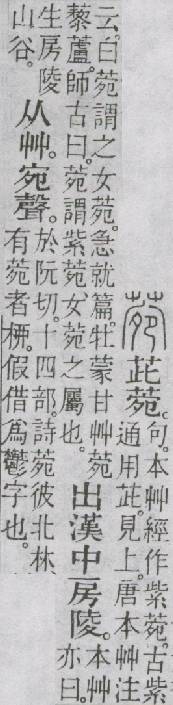 菀茈菀。
句。本艸經作紫菀。古紫
通用茈。見上。唐本艸注
云。白菀謂之女菀。急就篇。牡蒙甘艸菀
藜蘆。師古曰。菀謂紫菀。女菀之屬也。
出漢中房陵。
本艸
亦曰。
生房陵
山谷。
从艸。宛聲。
於阮切。十四部。詩菀彼北林
有菀者桺。假借爲鬱字也。